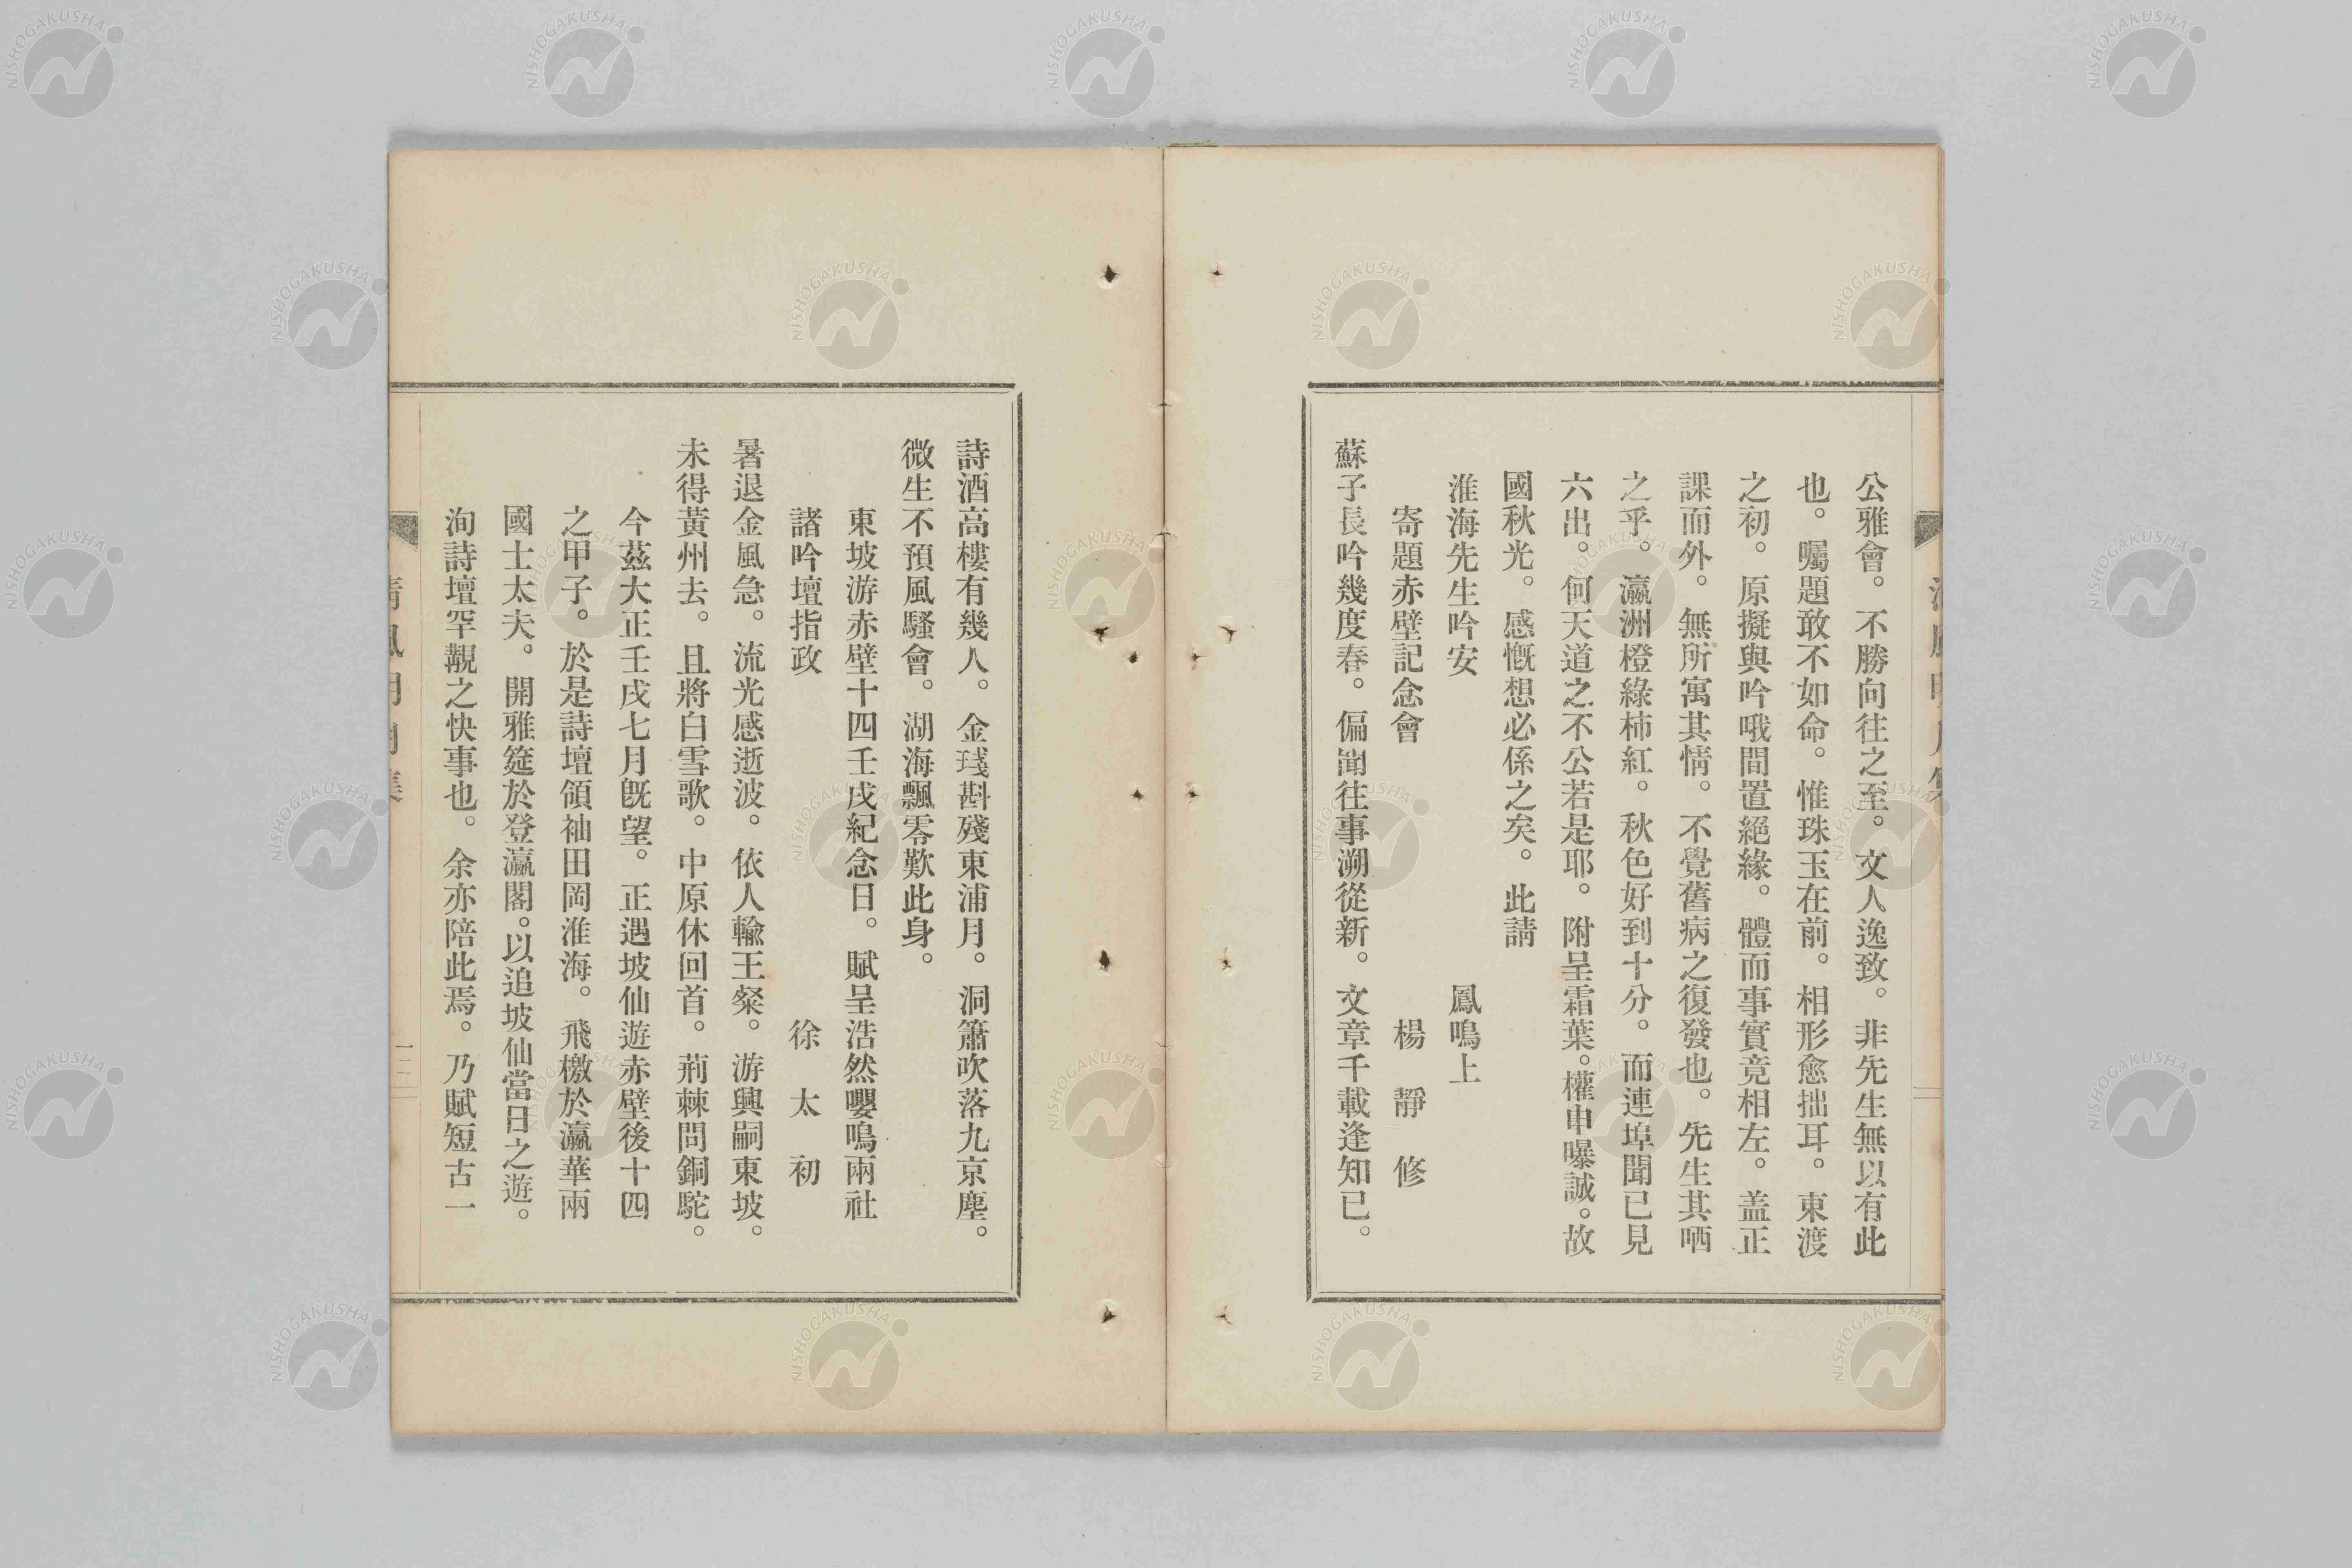 公雅會。不勝向往之至。文人逸致。非先生無以有此
也。囑題敢不如命。惟珠玉在前。相形愈拙耳。東渡
之初。原擬與吟哦間置絕緣。體而事實竟相左。盖正
課而外。無所寓其情。不覺舊病之復發也。先生其哂
之乎。瀛洲橙綠柿紅。秋色好到十分。而連埠聞已見
六出。何天道之不公若是耶。附呈霜葉。權申曝誠。故
國秋光。感慨想必係之矣。此請
淮海先生吟安　鳳鳴上
寄題赤壁記念會　楊靜修
蘇子長吟幾度春。偏聞往事溯從新。文章千載逢知已。
詩酒高樓有幾人。金琖斟殘東浦月。洞簫吹落九京塵。
微生不預風騷會。湖海飄零歎此身。
東坡游赤壁十四壬戌紀念日。賦呈浩然嚶鳴兩社
諸吟壇指政　徐太初
暑退金風急。流光感逝波。依人輸王粲。游興嗣東坡。
未得黃州去。且將白雪歌。中原休回首。荊棘問銅駝。
今茲大正壬戌七月旣望。正遇坡仙遊赤壁後十四
之甲子。於是詩壇領袖田岡淮海。飛檄於瀛華兩
國士太夫。開雅筵於登瀛閣。以追坡仙當日之遊。
洵詩壇罕覯之快事也。余亦陪此焉。乃賦短古一
NISHOGAKUSHA